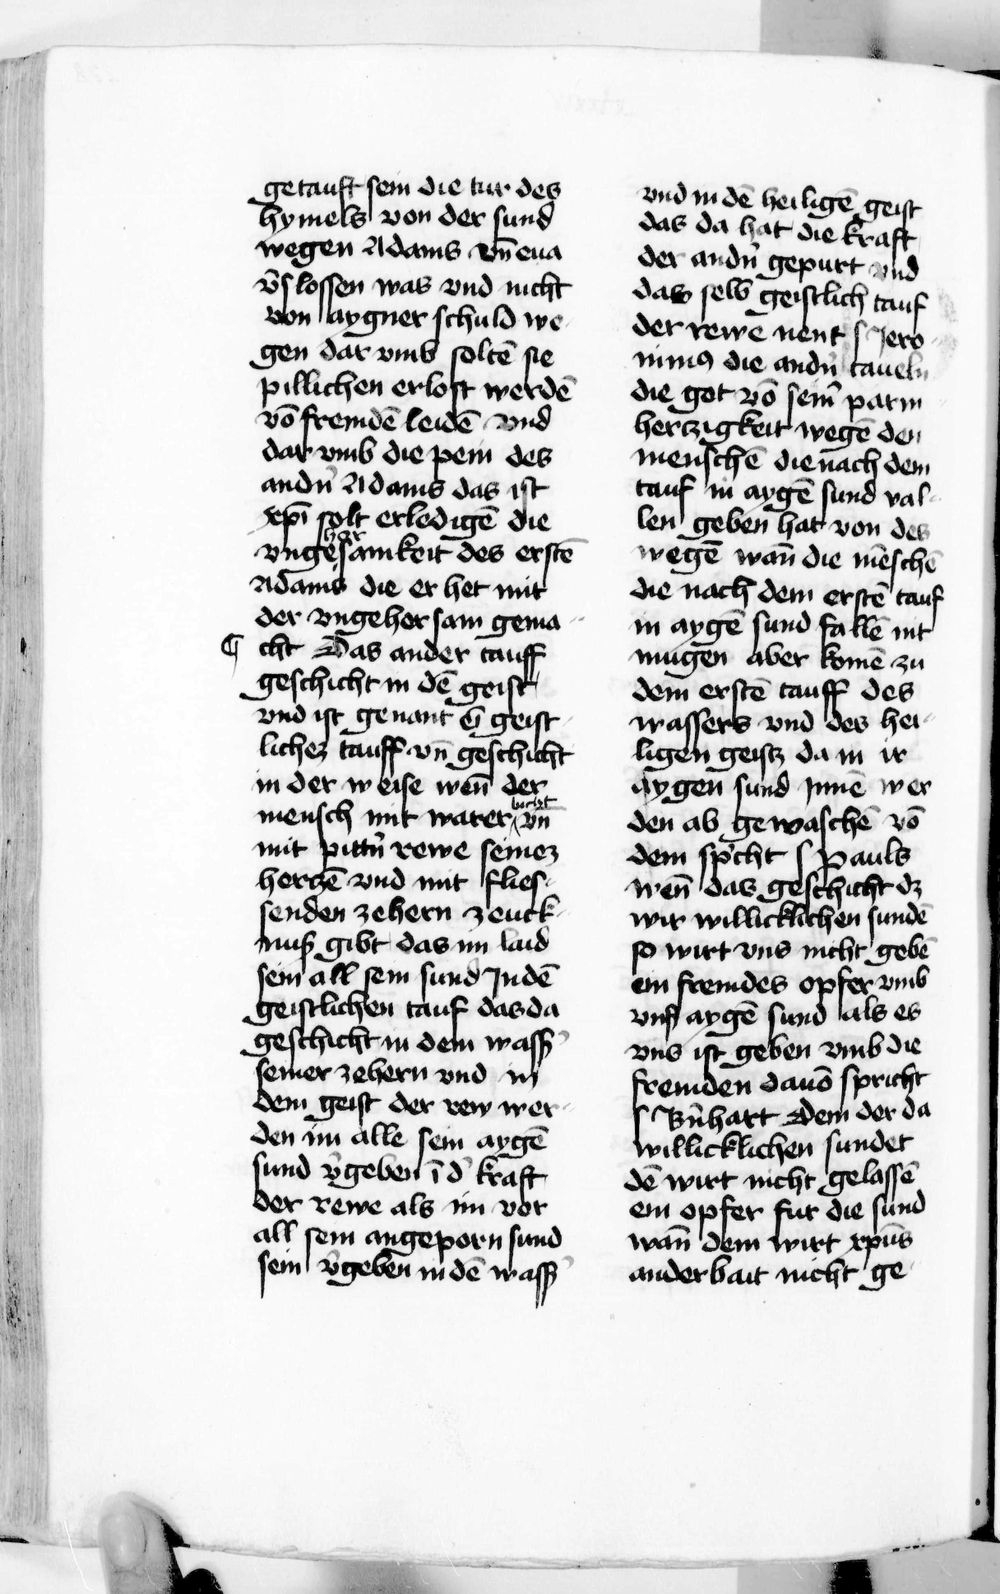 getauft sein die tur des
hymels von der sund
wegen Adams vn̄ eua
v̉slossen was vnd nicht
von aygner schuld we-
gen dar vmb soltē sie
pillichen erlost werdē
vō fremdē leidē vnd
dar vmb die pein des
andn̉ Adams das ist
xp̄i solt erledigē die
vngehorsamkeit des erstē
Adams die er het mit
der vngehorsam gema-
¶ cht Das ander tauff
geschicht in dē geist
vnd ist genant ein geist-
lichez tauff vn̄ geschicht
in der weise wen̄ der
mensch mit warer peicht vn̄
mit pittn̉ rewe seinez
herczē vnd mit flies-
senden zehern zeuck-
nuß gibt das im laid
sein all sein sund In dē
geistlichen tauf das da
geschicht in dem wass̉
seiner zehern vnd in
dem geist der rew wer-
den im alle sein aygē
sund v̉geben ī d̉ kraft
der rewe als im vor
all sein angeporn sund
sein v̉geben in dē wass̉
vnd in dē heiligē geist
das da hat die kraft
der andn̉ gepurt vnd
das selb geistlich tauf
der rewe nent s Jero-
nimus die andn̉ taueln
die got vō seinr̉ parm-
herczigkeit wegē den
menschē die nach dem
tauf in aygē sund val-
len geben hat von des
wegē wan̄ die mēschē
die nach dem erstē tauf
in aygē sund fallē nit
mugen aber komē zu
dem erstē tauff des
wassers vnd des hei-
ligen geistz da in ir
aygen sund Innē wer
den ab gewaschē vō
dem sp̉cht s Pauls
wen̄ das geschicht dz
wir willicklichen sundē
so wirt vns nicht gebē
ein fremdes opfer vmb
vns̉ aygē sund als es
vns ist geben vmb die
fremden dauō spricht
s Bn̉hart Dem der da
willicklichen sundet
dē wirt nicht gelassē
ein opfer fur die sund
wan̄ dem wirt xp̄us
anderbait nicht ge-